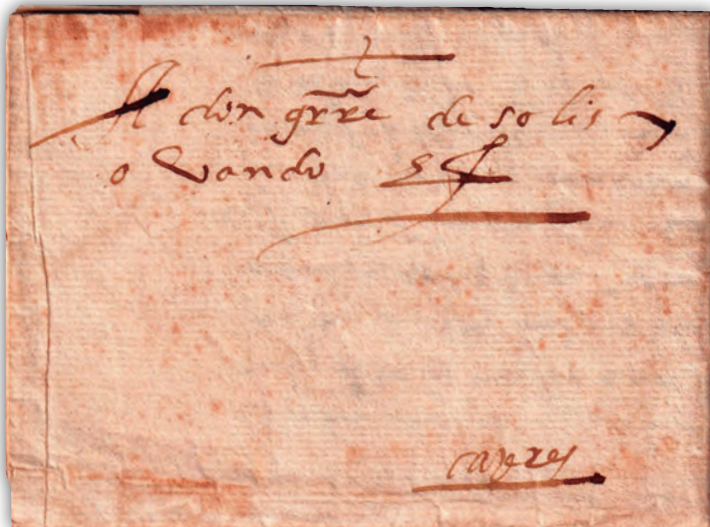 A don grr̃e de solis
ovando
caçeres